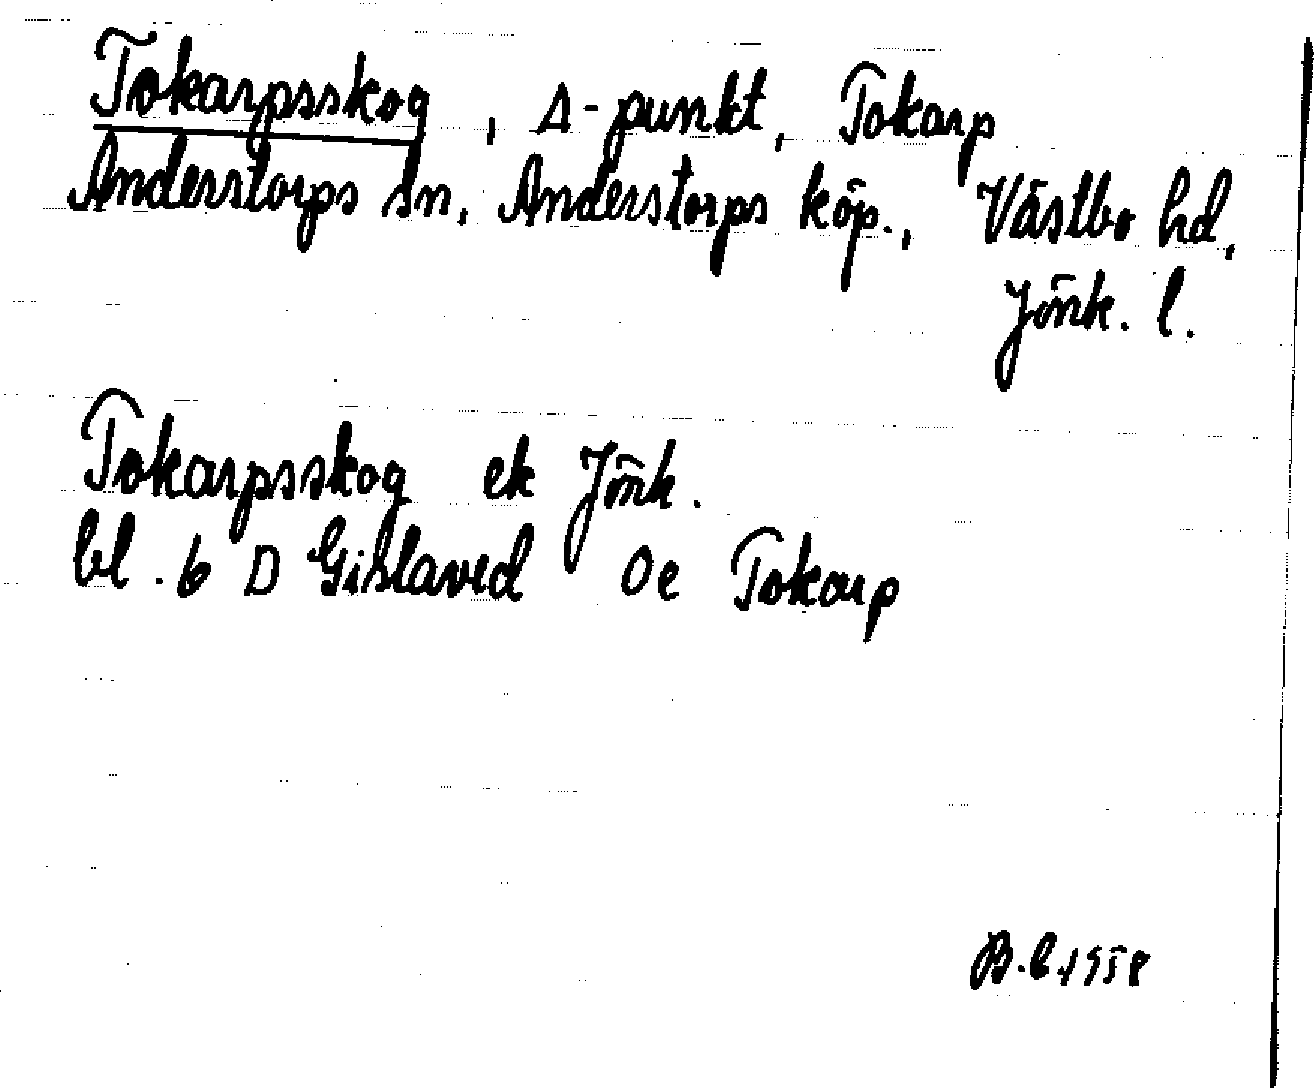 Tokarpsskog, Δ-punkt, Tokarp
Anderstorps sn, Anderstorps köp., Västbo hd,
Jönk. l.
Tokarpsskog ek Jönk.
bl. 6 D Gislaved 0e Tokarp
B.C. 1958